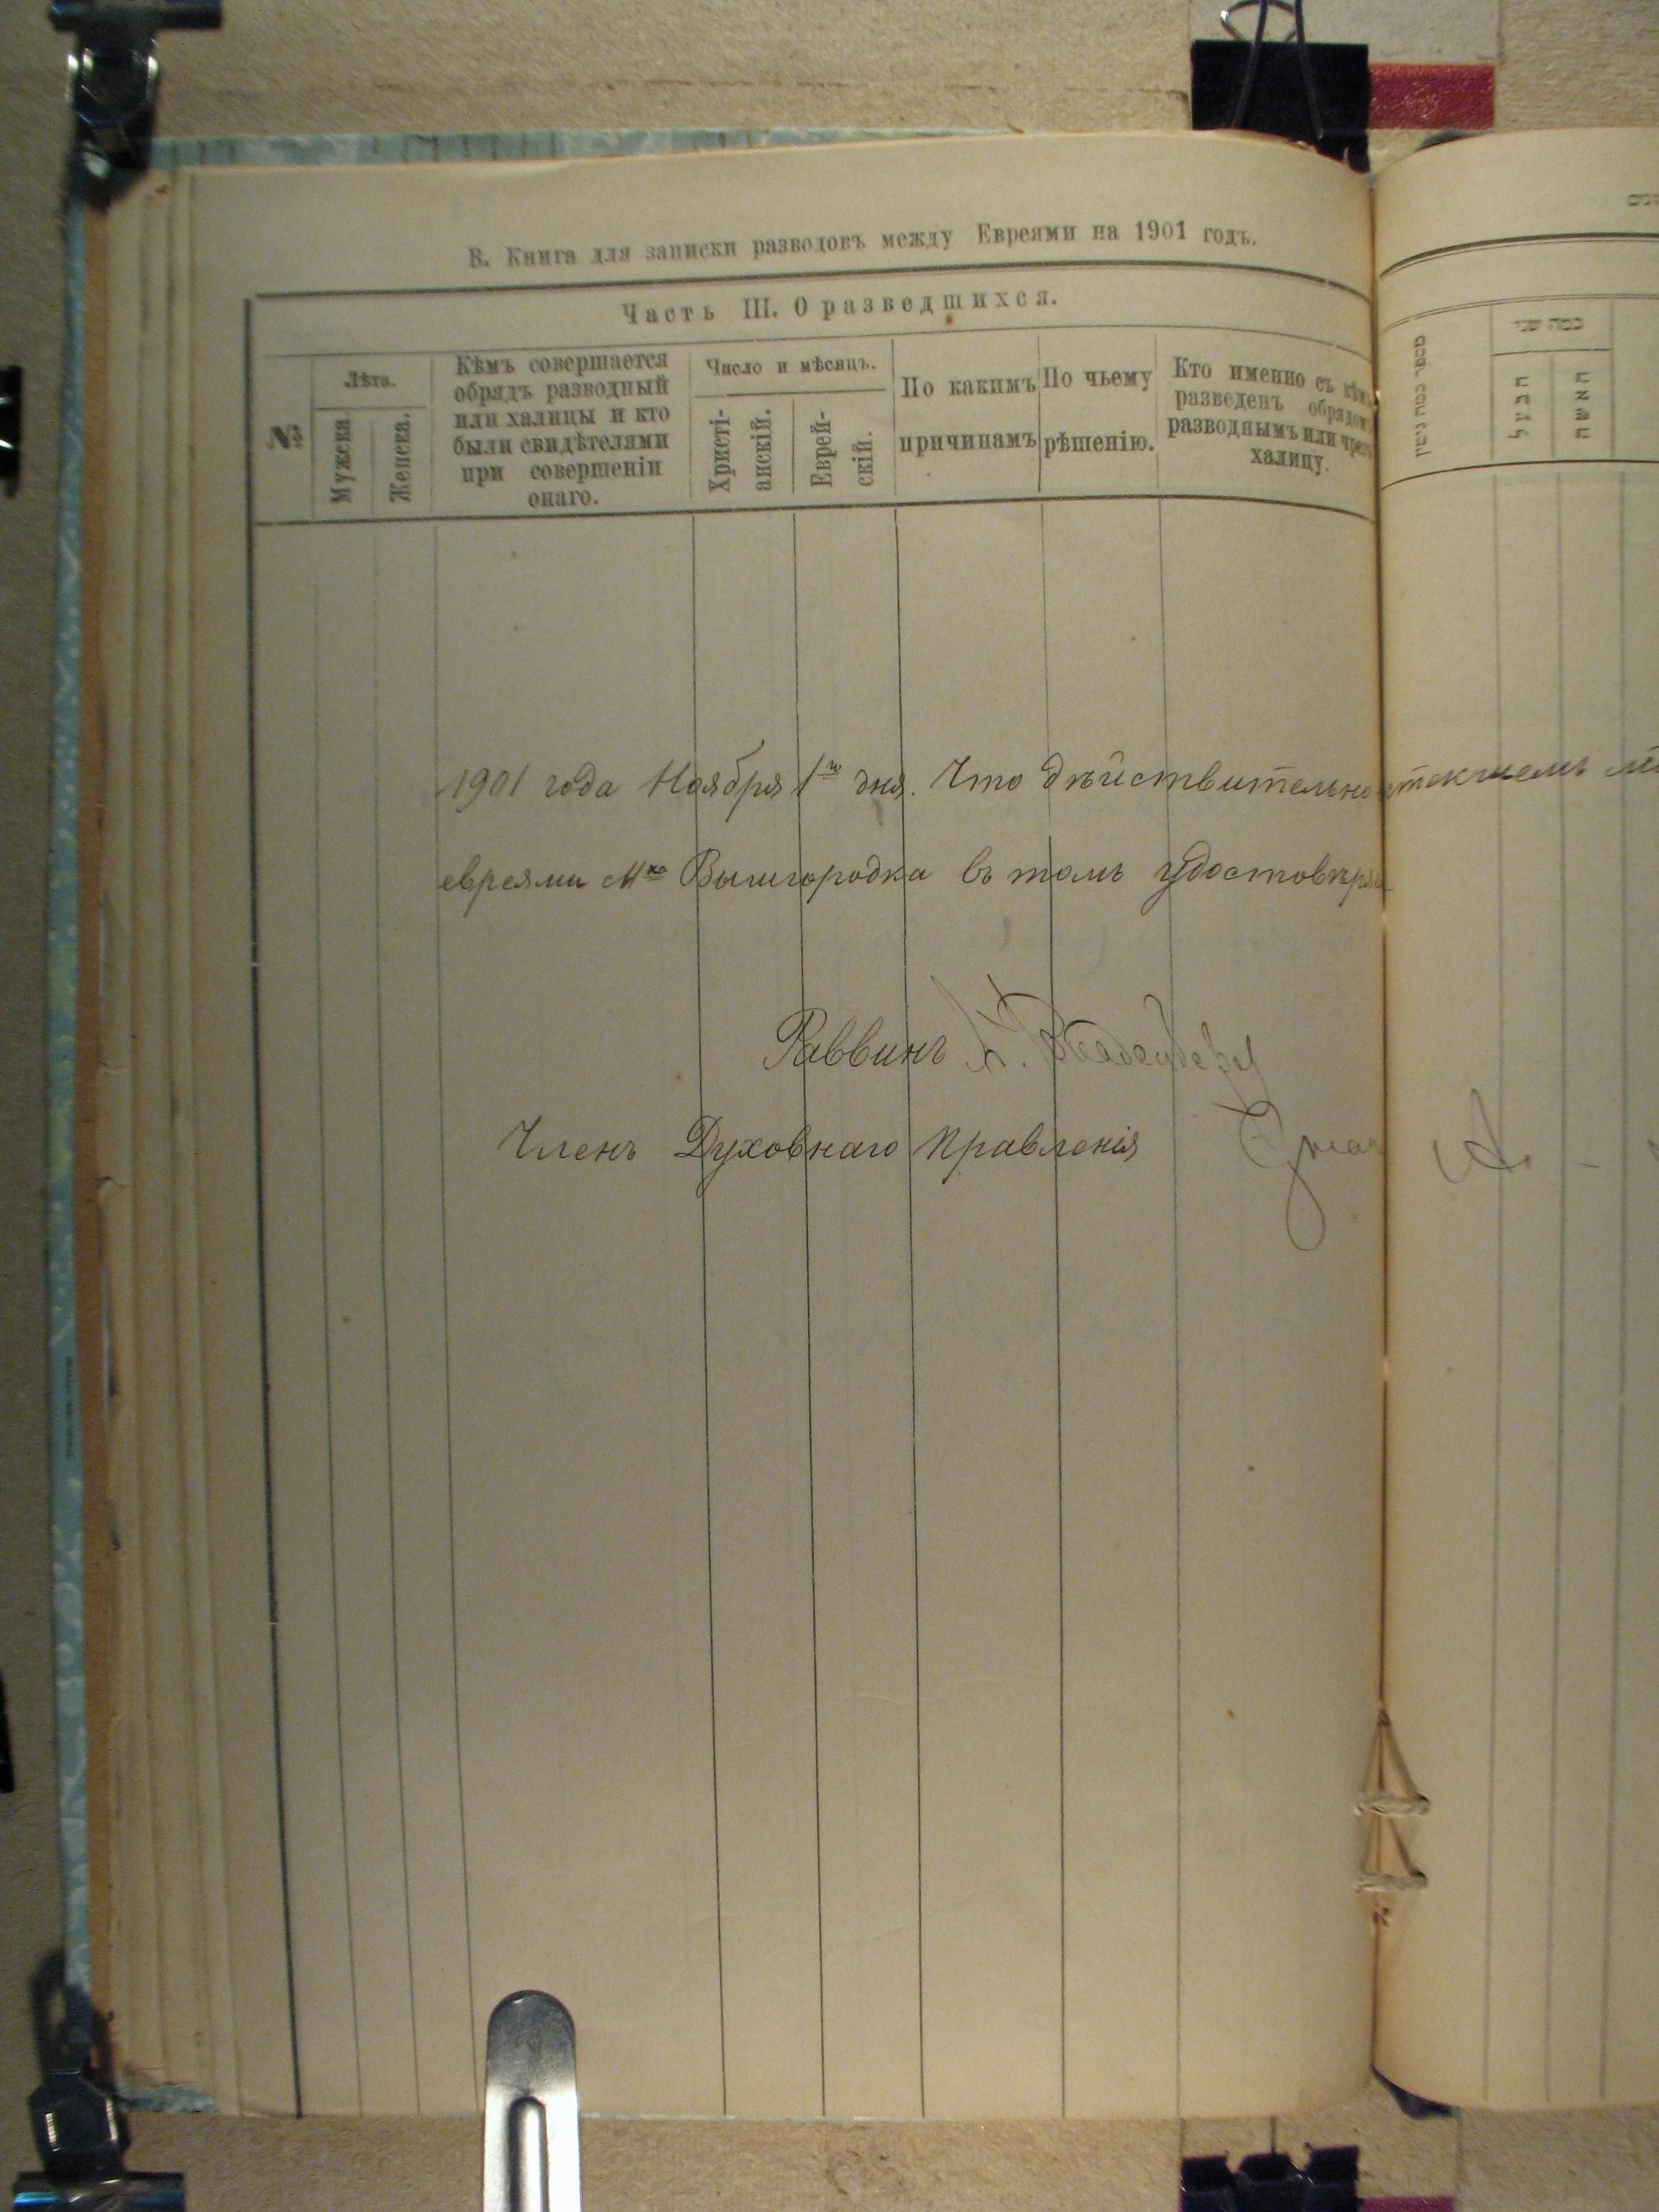 В. Книга для записки разводовъ между Евреями на 1901 годъ.
Часть III. О разведшихся.
№
Лѣта.
Мужска
Женска.
Кѣмъ совершается
обрядъ разводный
или халицы и кто
были свидѣтелями
при совершеніи
онаго.
Число и мѣсяцъ.
Христі-
анскій.
Еврей-
скій.
По какимъ
причинамъ
По чьему
рѣшенію.
Кто именно съ кѣмъ
разведенъ обрядомъ
разводнымъ или чрезъ
халицу.
כמה שני
הבעל
האשה
1901 года Ноября 1го дня. Что дѣйствительно
евреями мка Вышгородка въ томъ удостовѣря
Раввинъ
Членъ Духовнаго Правленія